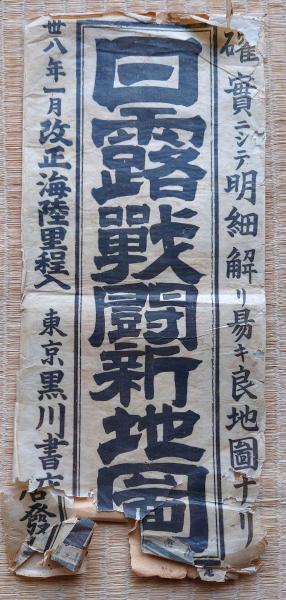 確實ニシテ明細解リ易キ良地圖ナリ
日露戰鬪新地圖
卅八年一月改正海陸里程入
東京黒川書店發